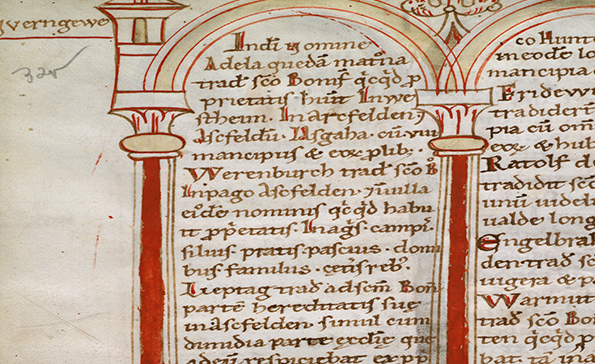 guerngewe
32v
In dī nomine
Adela quedam mat̄na
trad̄ sc̄o Bonif̄ qc̄qd̄ ꝓ
prietatis hūit Inwe
stheim. In Asefelden
Asefeldun. Asgaha. cū VIII
mancipiis & eoꝝ plib;
Werenburch trad̄ sc̄o B̄
In pago Asefelden. In uilla
eiꝰdē nominis qc̄qd̄ habu
it ꝓp̄etatis. In ag̃s. campis.
siluis pratis pascuis. domi
bus familiis. cet̄is reb;
Lieptag trad̄ ad sc̄m Bon̄
partē hereditatis sue
in Asefelden. simul cum
dimidia parte ecclie que
adem respiciebat ex
co Hunt
meode lo
mancipia
Frideww
tradider
pia cū om
& hub
Ratolf d
tradidit sc̄o
unū uidela
ualde long
Engelbra
den trad̄ sc̄o
iugera & p
Warmut
trad̄ sc̄o B
ten qc̄qd̄ p
bat tā in